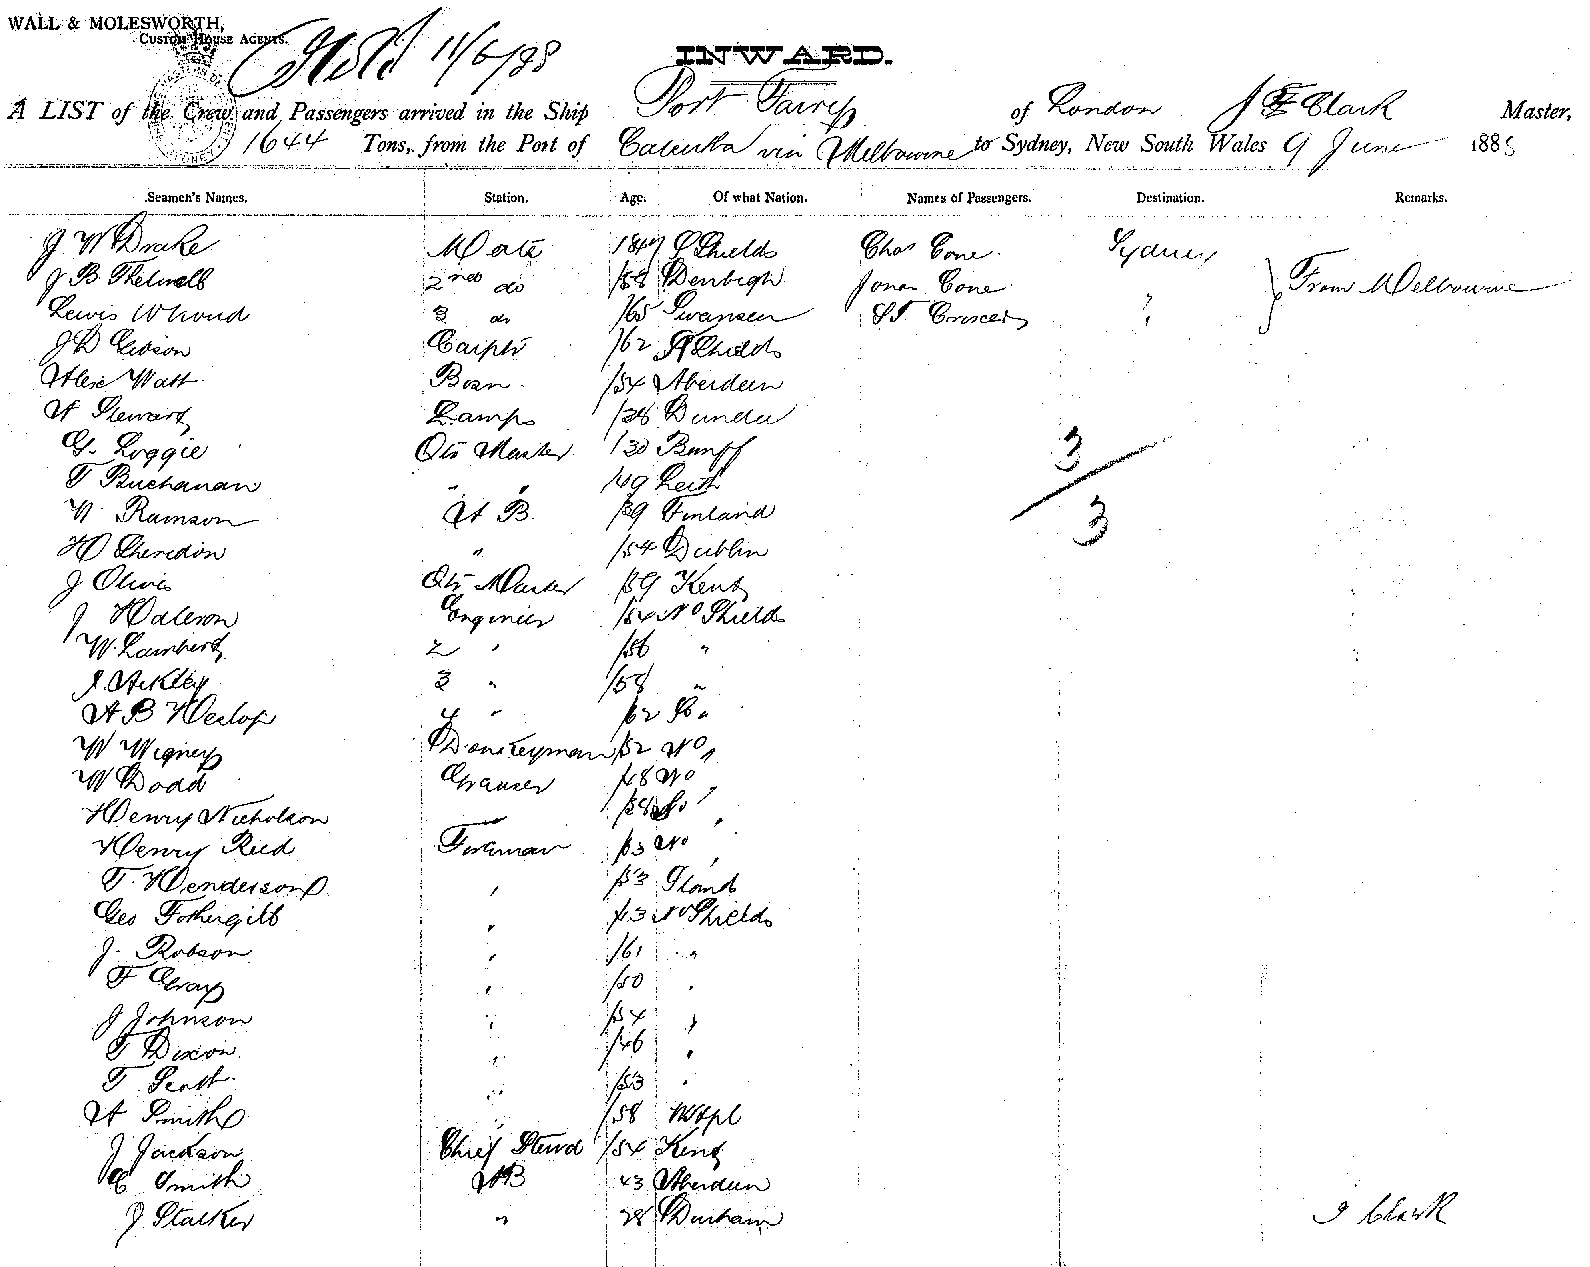 WALL & MOLESWORTH,
CUSTOM HOUSE AGENTS.
11/6/88
INWARD.
A LIST of the Crew and Passengers arrived in the Ship Port Fairy of London J E Clark Master,
1644 Tons, from the Port of Calcutta via Melbourne to Sydney, New South Wales 9 June 1888
Seamen's Names. Station. Age. Of what Nation. Names of Passengers. Destination. Remarks.
J W Drake Mate 1847 S Shields Chas Cone Sydney
J B Thelwall 2nd do /58 Denbigh Jonas Cone " From Melbourne
Lewis 3 do /65 Swansea "
J D Gibson Carptr /62 N Shields
Alex Watt Bosn /54 Aberdeen
A Stewart Lamps /28 Dundee
G. Loggie Qtr Master /30 Banff
T Buchanan " " /49 Leith
W Ramson A B /39 Finland
H Sheridon " /54 Dublin
J Olives Qtr Master /39 Kent
J Engineer /54 No Shields
W. Lambert 2 " /56 "
J. Ackley 3 " /58 "
A B Heslop 4 " /62 So "
W Wigney Donkeyman /52 No "
W Dodd Greaser /48 No
Henry Nicholson /38 So "
Henry Reid Fireman /63 No "
T. Henderson " /53
Geo Fothergill " /43 No Shields
J. Robson " /61 "
F Gray " /50 "
J Johnson " /54 "
T Dixon " /46 "
T Scott " /53 "
A Smith " /58
J Jackson Chief Stewd /54 Kent
C Smith AB 43 Aberdeen
J Stalker " 28 Durham
3/3
J Clark